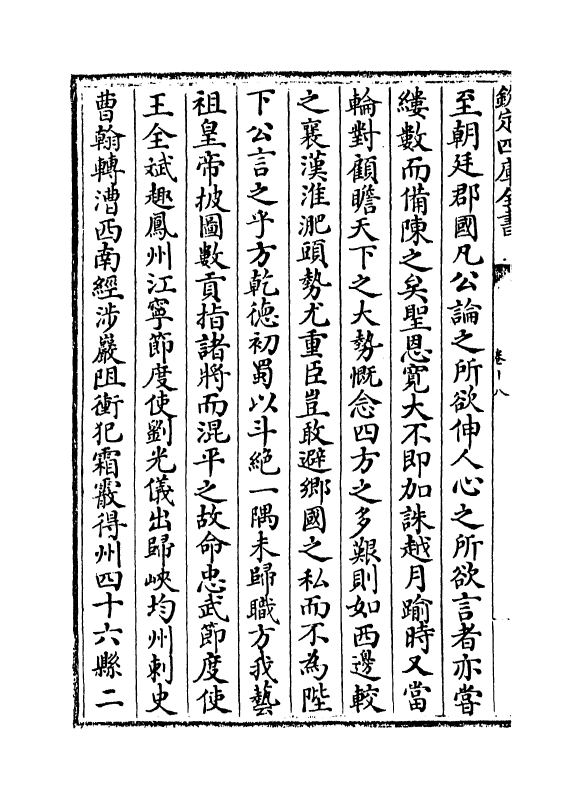 欽定四庫全書
卷十八
至朝廷郡國凡公論之所欲伸人心之所欲言者亦嘗
縷數而備陳之矣聖恩寛大不即加誅越月踰時又當
輪對顧瞻天下之大勢慨念四方之多艱則如西邊較
之襄漢淮淝頭勢尤重臣豈敢避鄉國之私而不為陛
下公言之乎方乾徳初蜀以斗絶一隅未歸職方我藝
祖皇帝披圖數貢指諸將而混平之故命忠武節度使
王全斌趣鳳州江寧節度使劉光儀出歸峽均州刺史
曹翰轉漕西南經渉巖阻衝犯霜霰得州四十六縣二